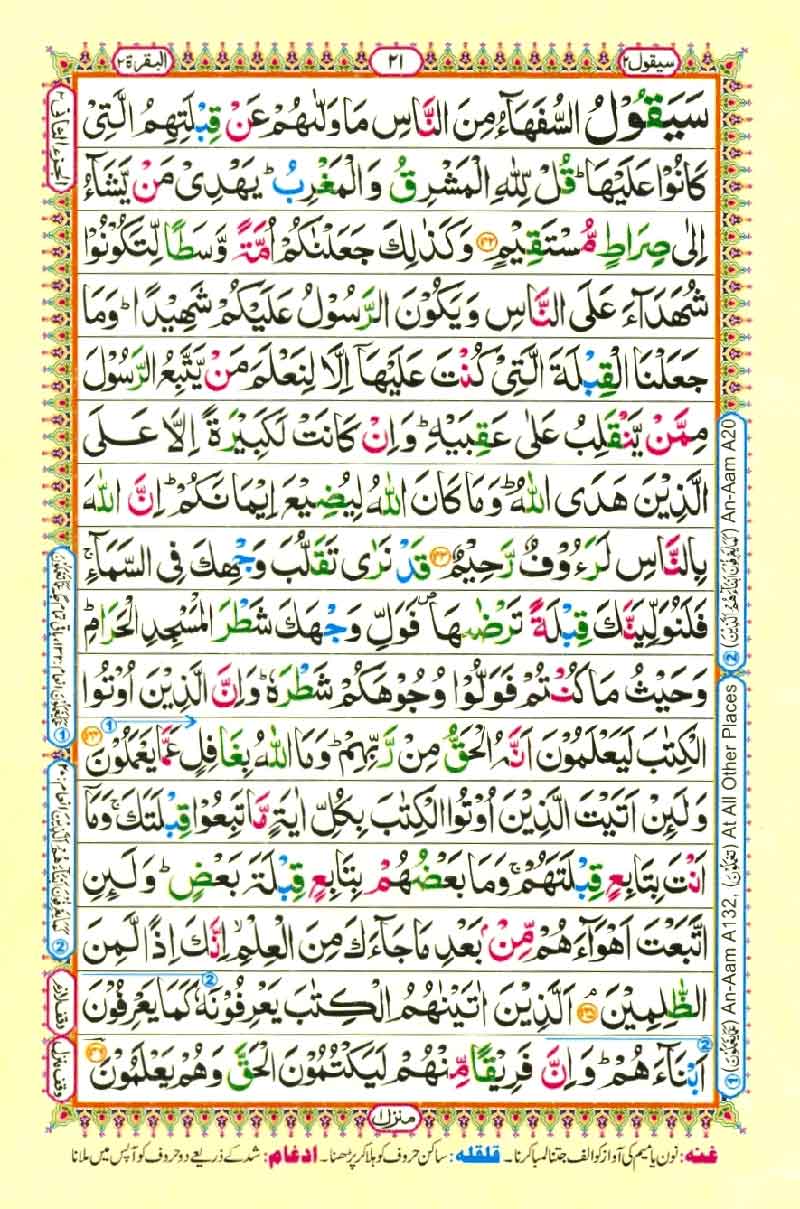 سيقول ٢
٢١
البقرة ٢
سَيَقُوْلُ السُّفَهَآءُ مِنَ النَّاسِ مَا وَلّٰىهُمْ عَنْ قِبْلَتِهِمُ الَّتِيْ
كَانُوْا عَلَيْهَا ؕ قُلْ لِّلّٰهِ الْمَشْرِقُ وَالْمَغْرِبُ ؕ يَهْدِيْ مَنْ يَّشَآءُ
اِلٰى صِرَاطٍ مُّسْتَقِيْمٍ ۝۱۴۲ وَكَذٰلِكَ جَعَلْنٰكُمْ اُمَّةً وَّسَطًا لِّتَكُوْنُوْا
شُهَدَآءَ عَلَى النَّاسِ وَيَكُوْنَ الرَّسُوْلُ عَلَيْكُمْ شَهِيْدًا ؕ وَمَا
جَعَلْنَا الْقِبْلَةَ الَّتِيْ كُنْتَ عَلَيْهَاۤ اِلَّا لِنَعْلَمَ مَنْ يَّتَّبِعُ الرَّسُوْلَ
مِمَّنْ يَّنْقَلِبُ عَلٰى عَقِبَيْهِ ؕ وَاِنْ كَانَتْ لَكَبِيْرَةً اِلَّا عَلَى
الَّذِيْنَ هَدَى اللّٰهُ ؕ وَمَا كَانَ اللّٰهُ لِيُضِيْعَ اِيْمَانَكُمْ ؕ اِنَّ اللّٰهَ
بِالنَّاسِ لَرَءُوْفٌ رَّحِيْمٌ ۝۱۴۳ قَدْ نَرٰى تَقَلُّبَ وَجْهِكَ فِي السَّمَآءِ ۚ
فَلَنُوَلِّيَنَّكَ قِبْلَةً تَرْضٰىهَا ۪ فَوَلِّ وَجْهَكَ شَطْرَ الْمَسْجِدِ الْحَرَامِ ؕ
وَحَيْثُ مَا كُنْتُمْ فَوَلُّوْا وُجُوْهَكُمْ شَطْرَهٗ ؕ وَاِنَّ الَّذِيْنَ اُوْتُوا
الْكِتٰبَ لَيَعْلَمُوْنَ اَنَّهُ الْحَقُّ مِنْ رَّبِّهِمْ ؕ وَمَا اللّٰهُ بِغَافِلٍ عَمَّا يَعْمَلُوْنَ ۝۱۴۴
وَلَئِنْ اَتَيْتَ الَّذِيْنَ اُوْتُوا الْكِتٰبَ بِكُلِّ اٰيَةٍ مَّا تَبِعُوْا قِبْلَتَكَ ۚ وَمَاۤ
اَنْتَ بِتَابِعٍ قِبْلَتَهُمْ ۚ وَمَا بَعْضُهُمْ بِتَابِعٍ قِبْلَةَ بَعْضٍ ؕ وَلَئِنِ
اتَّبَعْتَ اَهْوَآءَهُمْ مِّنْۢ بَعْدِ مَا جَآءَكَ مِنَ الْعِلْمِ ۙ اِنَّكَ اِذًا لَّمِنَ
الظّٰلِمِيْنَ ۝۱۴۵ اَلَّذِيْنَ اٰتَيْنٰهُمُ الْكِتٰبَ يَعْرِفُوْنَهٗ كَمَا يَعْرِفُوْنَ
اَبْنَآءَهُمْ ؕ وَاِنَّ فَرِيْقًا مِّنْهُمْ لَيَكْتُمُوْنَ الْحَقَّ وَهُمْ يَعْلَمُوْنَ ۝۱۴۶
① (عَمَّا يَعْمَلُوْنَ) An-Aam A132, (تَعْمَلُوْنَ) At All Other Places ② (كَمَا يَعْرِفُوْنَ اَبْنَآءَهُمْ اَلَّذِيْنَ) An-Aam A20
وقف لازم
وقف منزل
منزل ١
غنه: نون یا میم کی آواز کو الف جتنا لمبا کرنا۔ قلقله: ساکن حروف کو ہلا کر پڑھنا۔ ادغام: شد کے ذریعے دو حروف کو آپس میں ملانا